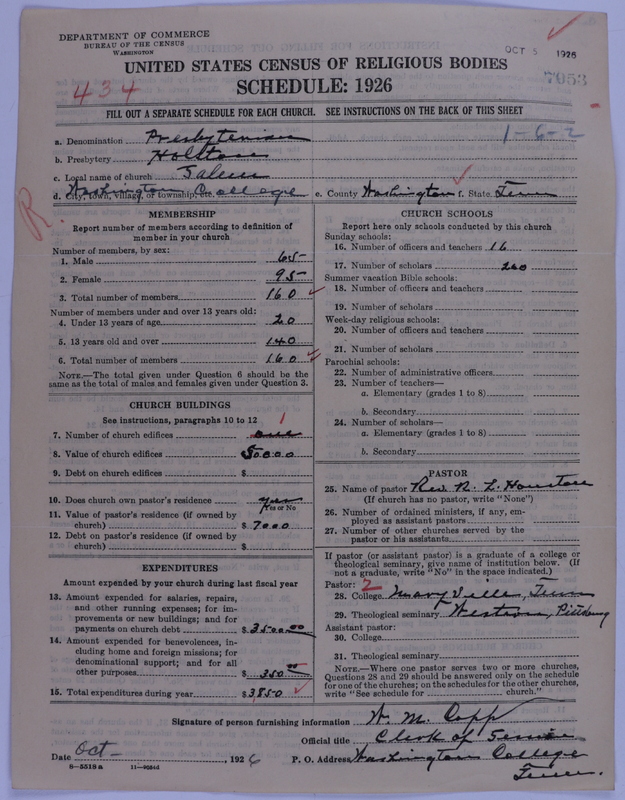 DEPARTMENT OF COMMERCE
BUREAU OF THE CENSUS
WASHINGTON
OCT 5 1926
7053
UNITED STATES CENSUS OF RELIGIOUS BODIES
SCHEDULE: 1926
434
FILL OUT A SEPARATE SCHEDULE FOR EACH CHURCH. SEE INSTRUCTIONS ON THE BACK OF THIS SHEET
a. Denomination Presbyterian
1-6-2
b. Presbytery Holston
c. Local name of church Salem
d. City, town, village, or township, etc. Washington College e. County Washington f. State Tenn
R.
MEMBERSHIP
Report number of members according to definition of
member in your church
Number of members, by sex:
1. Male 65
2. Female 95
3. Total number of members 160
Number of members under and over 13 years old:
4. Under 13 years of age 20
5. 13 years old and over 140
6. Total number of members 160
NOTE.—The total given under Question 6 should be the
same as the total of males and females given under Question 3.
CHURCH BUILDINGS
See instructions, paragraphs 10 to 12
1
7. Number of church edifices one
8. Value of church edifices 50000
9. Debt on church edifices $
10. Does church own pastor's residence yes
Yes or No
11. Value of pastor's residence (if owned by
church) $ 7000
12. Debt on pastor's residence (if owned by
church) $
EXPENDITURES
Amount expended by your church during last fiscal year
13. Amount expended for salaries, repairs,
and other running expenses; for im-
provements or new buildings; and for
payments on church debt $ 3500.00
14. Amount expended for benevolences, in-
cluding home and foreign missions; for
denominational support; and for all
other purposes $ 350 00
15. Total expenditures during year $ 3850
CHURCH SCHOOLS
Report here only schools conducted by this church
Sunday schools:
16. Number of officers and teachers 16
17. Number of scholars 200
Summer vacation Bible schools:
18. Number of officers and teachers
19. Number of scholars
Week-day religious schools:
20. Number of officers and teachers
21. Number of scholars
Parochial schools:
22. Number of administrative officers
23. Number of teachers—
a. Elementary (grades 1 to 8)
b. Secondary
24. Number of scholars—
a. Elementary (grades 1 to 8)
b. Secondary
PASTOR
25. Name of pastor Rev. R. L. Houston
(If church has no pastor, write "None")
26. Number of ordained ministers, if any, em-
ployed as assistant pastors
27. Number of other churches served by the
pastor or his assistants
If pastor (or assistant pastor) is a graduate of a college or
theological seminary, give name of institution below. (If
not a graduate, write "No" in the space indicated.)
Pastor: 2
28. College Maryville, Tenn
29. Theological seminary Western, Pittsburg
Assistant pastor:
30. College
31. Theological seminary
NOTE.—Where one pastor serves two or more churches,
Questions 28 and 29 should be answered only on the schedule
for one of the churches; on the schedules for the other churches,
write "See schedule for church."
Signature of person furnishing information W. M. Copp
Official title Clerk of Session
Date Oct- , 1926 P. O. Address Washington College
Tenn.
8-5518a